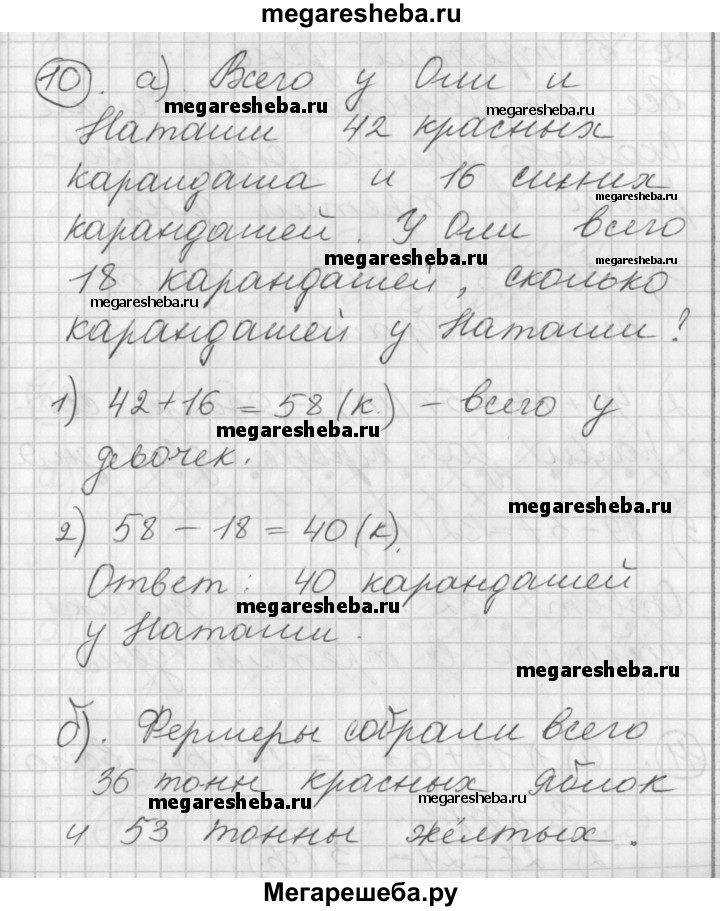 megaresheba.ru
10. а) Всего у Оли и
megaresheba.ru megaresheba.ru
Наташи 42 красных
карандаша и 16 синих
megaresheba.ru
карандашей. У Оли всего
megaresheba.ru
18 карандашей, сколько
megaresheba.ru
карандашей у Наташи?
1) 42+16 = 58 (к.) – всего у
megaresheba.ru
девочек.
megaresheba.ru
2) 58 – 18 = 40 (к).
Ответ: 40 карандашей
megaresheba.ru
у Наташи.
megaresheba.ru
б). Фермеры собрали всего
36 тонн красных яблок
megaresheba.ru megaresheba.ru
и 53 тонны жёлтых.
Мегарешеба.ру